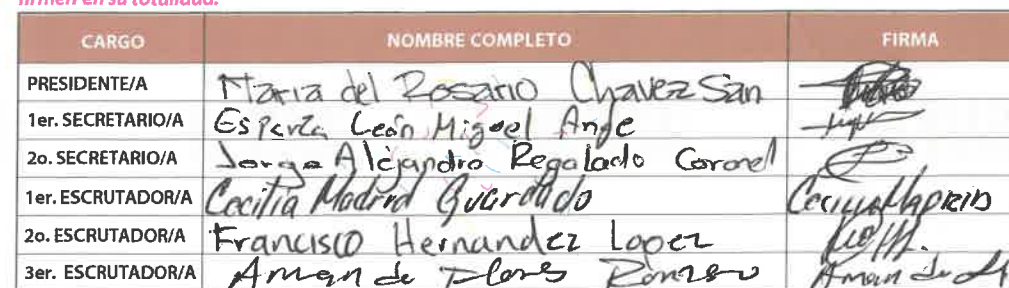 firmen en su totalidad.
CARGO NOMBRE COMPLETO FIRMA
PRESIDENTE/A Maria del Rosario Chavez San
1er. SECRETARIO/A Esparza León Miguel Ange
2o. SECRETARIO/A Jorge Alejandro Regalado Coronel
1er. ESCRUTADOR/A Cecilia Madrid Guardado Cecilia Madrid
2o. ESCRUTADOR/A Francisco Hernandez Lopez
3er. ESCRUTADOR/A Aman de Flores Romero Aman de